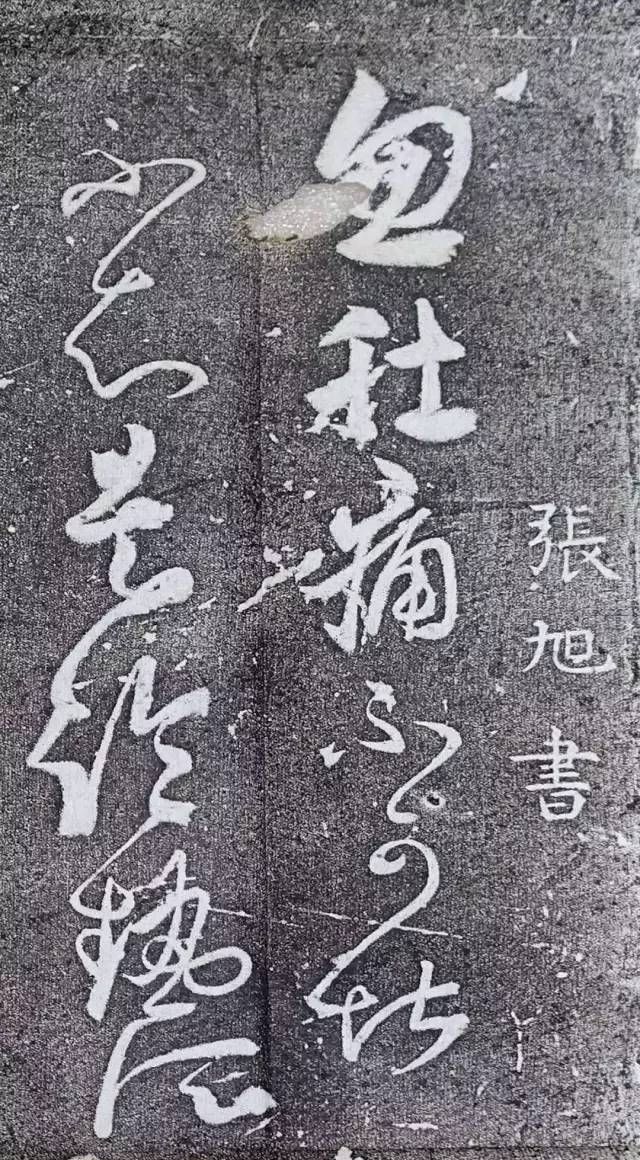 張旭書
忽肚痛不可堪
不知是冷熱所